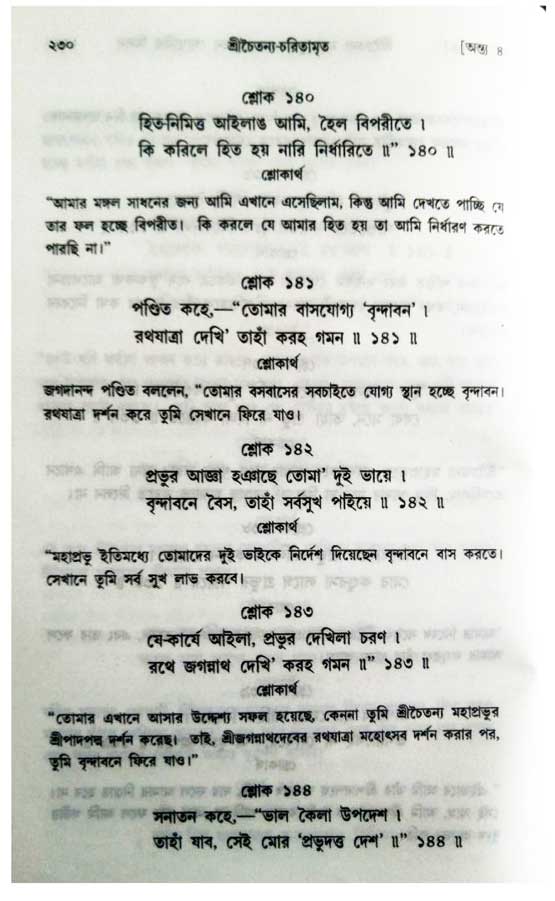 ২৩০ শ্রীচৈতন্য-চরিতামৃত [অন্ত্য ৪
শ্লোক ১৪০
হিত-নিমিত্ত আইলাঙ আমি, হৈল বিপরীতে ।
কি করিলে হিত হয় নারি নির্ধারিতে ॥" ১৪০ ॥
শ্লোকার্থ
"আমার মঙ্গল সাধনের জন্য আমি এখানে এসেছিলাম, কিন্তু আমি দেখতে পাচ্ছি যে
তার ফল হচ্ছে বিপরীত। কি করলে যে আমার হিত হয় তা আমি নির্ধারণ করতে
পারছি না।"
শ্লোক ১৪১
পণ্ডিত কহে,—"তোমার বাসযোগ্য 'বৃন্দাবন' ।
রথযাত্রা দেখি' তাহাঁ করহ গমন ॥ ১৪১ ॥
শ্লোকার্থ
জগদানন্দ পণ্ডিত বললেন, "তোমার বসবাসের সবচাইতে যোগ্য স্থান হচ্ছে বৃন্দাবন।
রথযাত্রা দর্শন করে তুমি সেখানে ফিরে যাও।
শ্লোক ১৪২
প্রভুর আজ্ঞা হঞাছে তোমা' দুই ভায়ে ।
বৃন্দাবনে বৈস, তাহাঁ সর্বসুখ পাইয়ে ॥ ১৪২ ॥
শ্লোকার্থ
"মহাপ্রভু ইতিমধ্যে তোমাদের দুই ভাইকে নির্দেশ দিয়েছেন বৃন্দাবনে বাস করতে।
সেখানে তুমি সর্ব সুখ লাভ করবে।
শ্লোক ১৪৩
যে-কার্যে আইলা, প্রভুর দেখিলা চরণ ।
রথে জগন্নাথ দেখি' করহ গমন ॥" ১৪৩ ॥
শ্লোকার্থ
"তোমার এখানে আসার উদ্দেশ্য সফল হয়েছে, কেননা তুমি শ্রীচৈতন্য মহাপ্রভুর
শ্রীপাদপদ্ম দর্শন করেছ। তাই, শ্রীজগন্নাথদেবের রথযাত্রা মহোৎসব দর্শন করার পর,
তুমি বৃন্দাবনে ফিরে যাও।"
শ্লোক ১৪৪
সনাতন কহে,—"ভাল কৈলা উপদেশ ।
তাহাঁ যাব, সেই মোর 'প্রভুদত্ত দেশ' ॥" ১৪৪ ॥